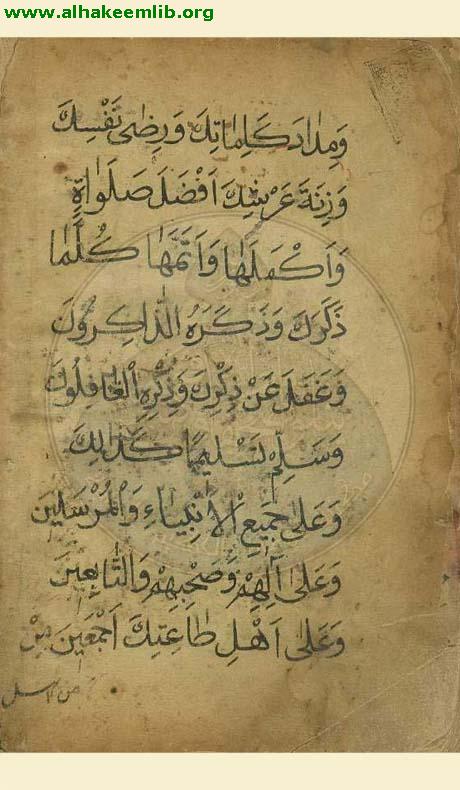 www.alhakeemlib.org
وَمِدَادَ كَلِمَاتِكَ وَرِضٰى نَفْسِكَ
وَزِنَةَ عَرْشِكَ اَفْضَلَ صَلَوٰاةٍ
وَاَكْمَلَهَا وَاَتَمَّهَا كُلَّمَا
ذَكَرَكَ وَذَكَرَهُ الذَّاكِرُونَ
وَغَفَلَ عَنْ ذِكْرِكَ وَذِكْرِهِ الْغَافِلُونَ
وَسَلِّمْ تَسْلِيمًا كَذَالِكَ
وَعَلىٰ جَمِيعِ الْاَنْبِيَاءِ وَالْمُرْسَلِينَ
وَعَلىٰ اٰلِهِمْ وَصَحْبِهِمْ وَالتَّابِعِينَ
وَعَلىٰ اَهْلِ طَاعَتِكَ اَجْمَعِينَ مِنْ